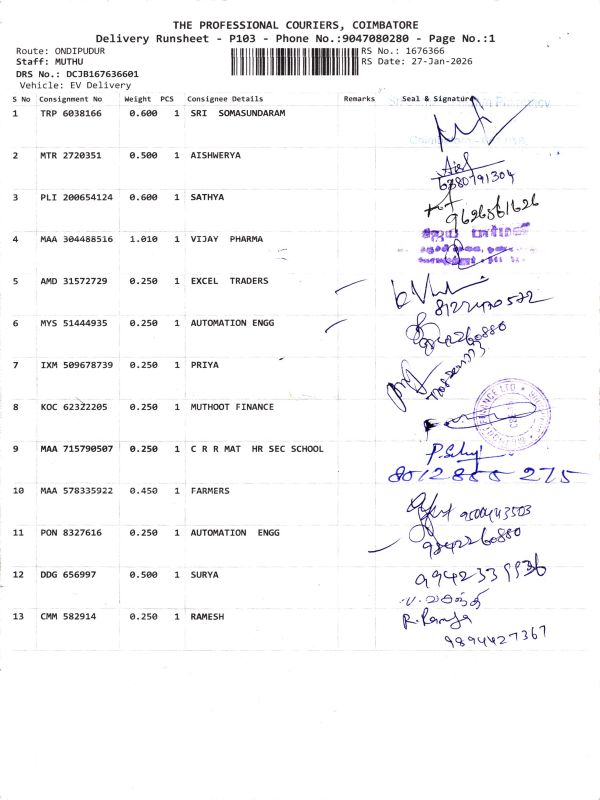 THE PROFESSIONAL COURIERS, COIMBATORE
Delivery Runsheet - P103 - Phone No.:9047080280 - Page No.:1
Route: ONDIPUDUR RS No.: 1676366
Staff: MUTHU RS Date: 27-Jan-2026
DRS No.: DCJB167636601
Vehicle: EV Delivery
S No Consignment No Weight PCS Consignee Details Remarks Seal & Signature
1 TRP 6038166 0.600 1 SRI SOMASUNDARAM
2 MTR 2720351 0.500 1 AISHWERYA
6380791304
3 PLI 200654124 0.600 1 SATHYA
9626561626
4 MAA 304488516 1.010 1 VIJAY PHARMA
5 AMD 31572729 0.250 1 EXCEL TRADERS
6 MYS 51444935 0.250 1 AUTOMATION ENGG
9842260880
7 IXM 509678739 0.250 1 PRIYA
8 KOC 62322205 0.250 1 MUTHOOT FINANCE
9 MAA 715790507 0.250 1 C R R MAT HR SEC SCHOOL
8012855 275
10 MAA 578335922 0.450 1 FARMERS
9500443503
11 PON 8327616 0.250 1 AUTOMATION ENGG
9842260880
12 DDG 656997 0.500 1 SURYA
9942339936
13 CMM 582914 0.250 1 RAMESH
R. Ramya
9894427367